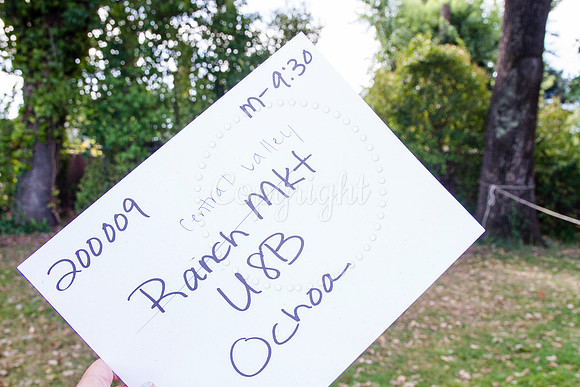 m-9:30
200009
Central Valley
Ranch Mkt
U8B
Ochoa
Copyright